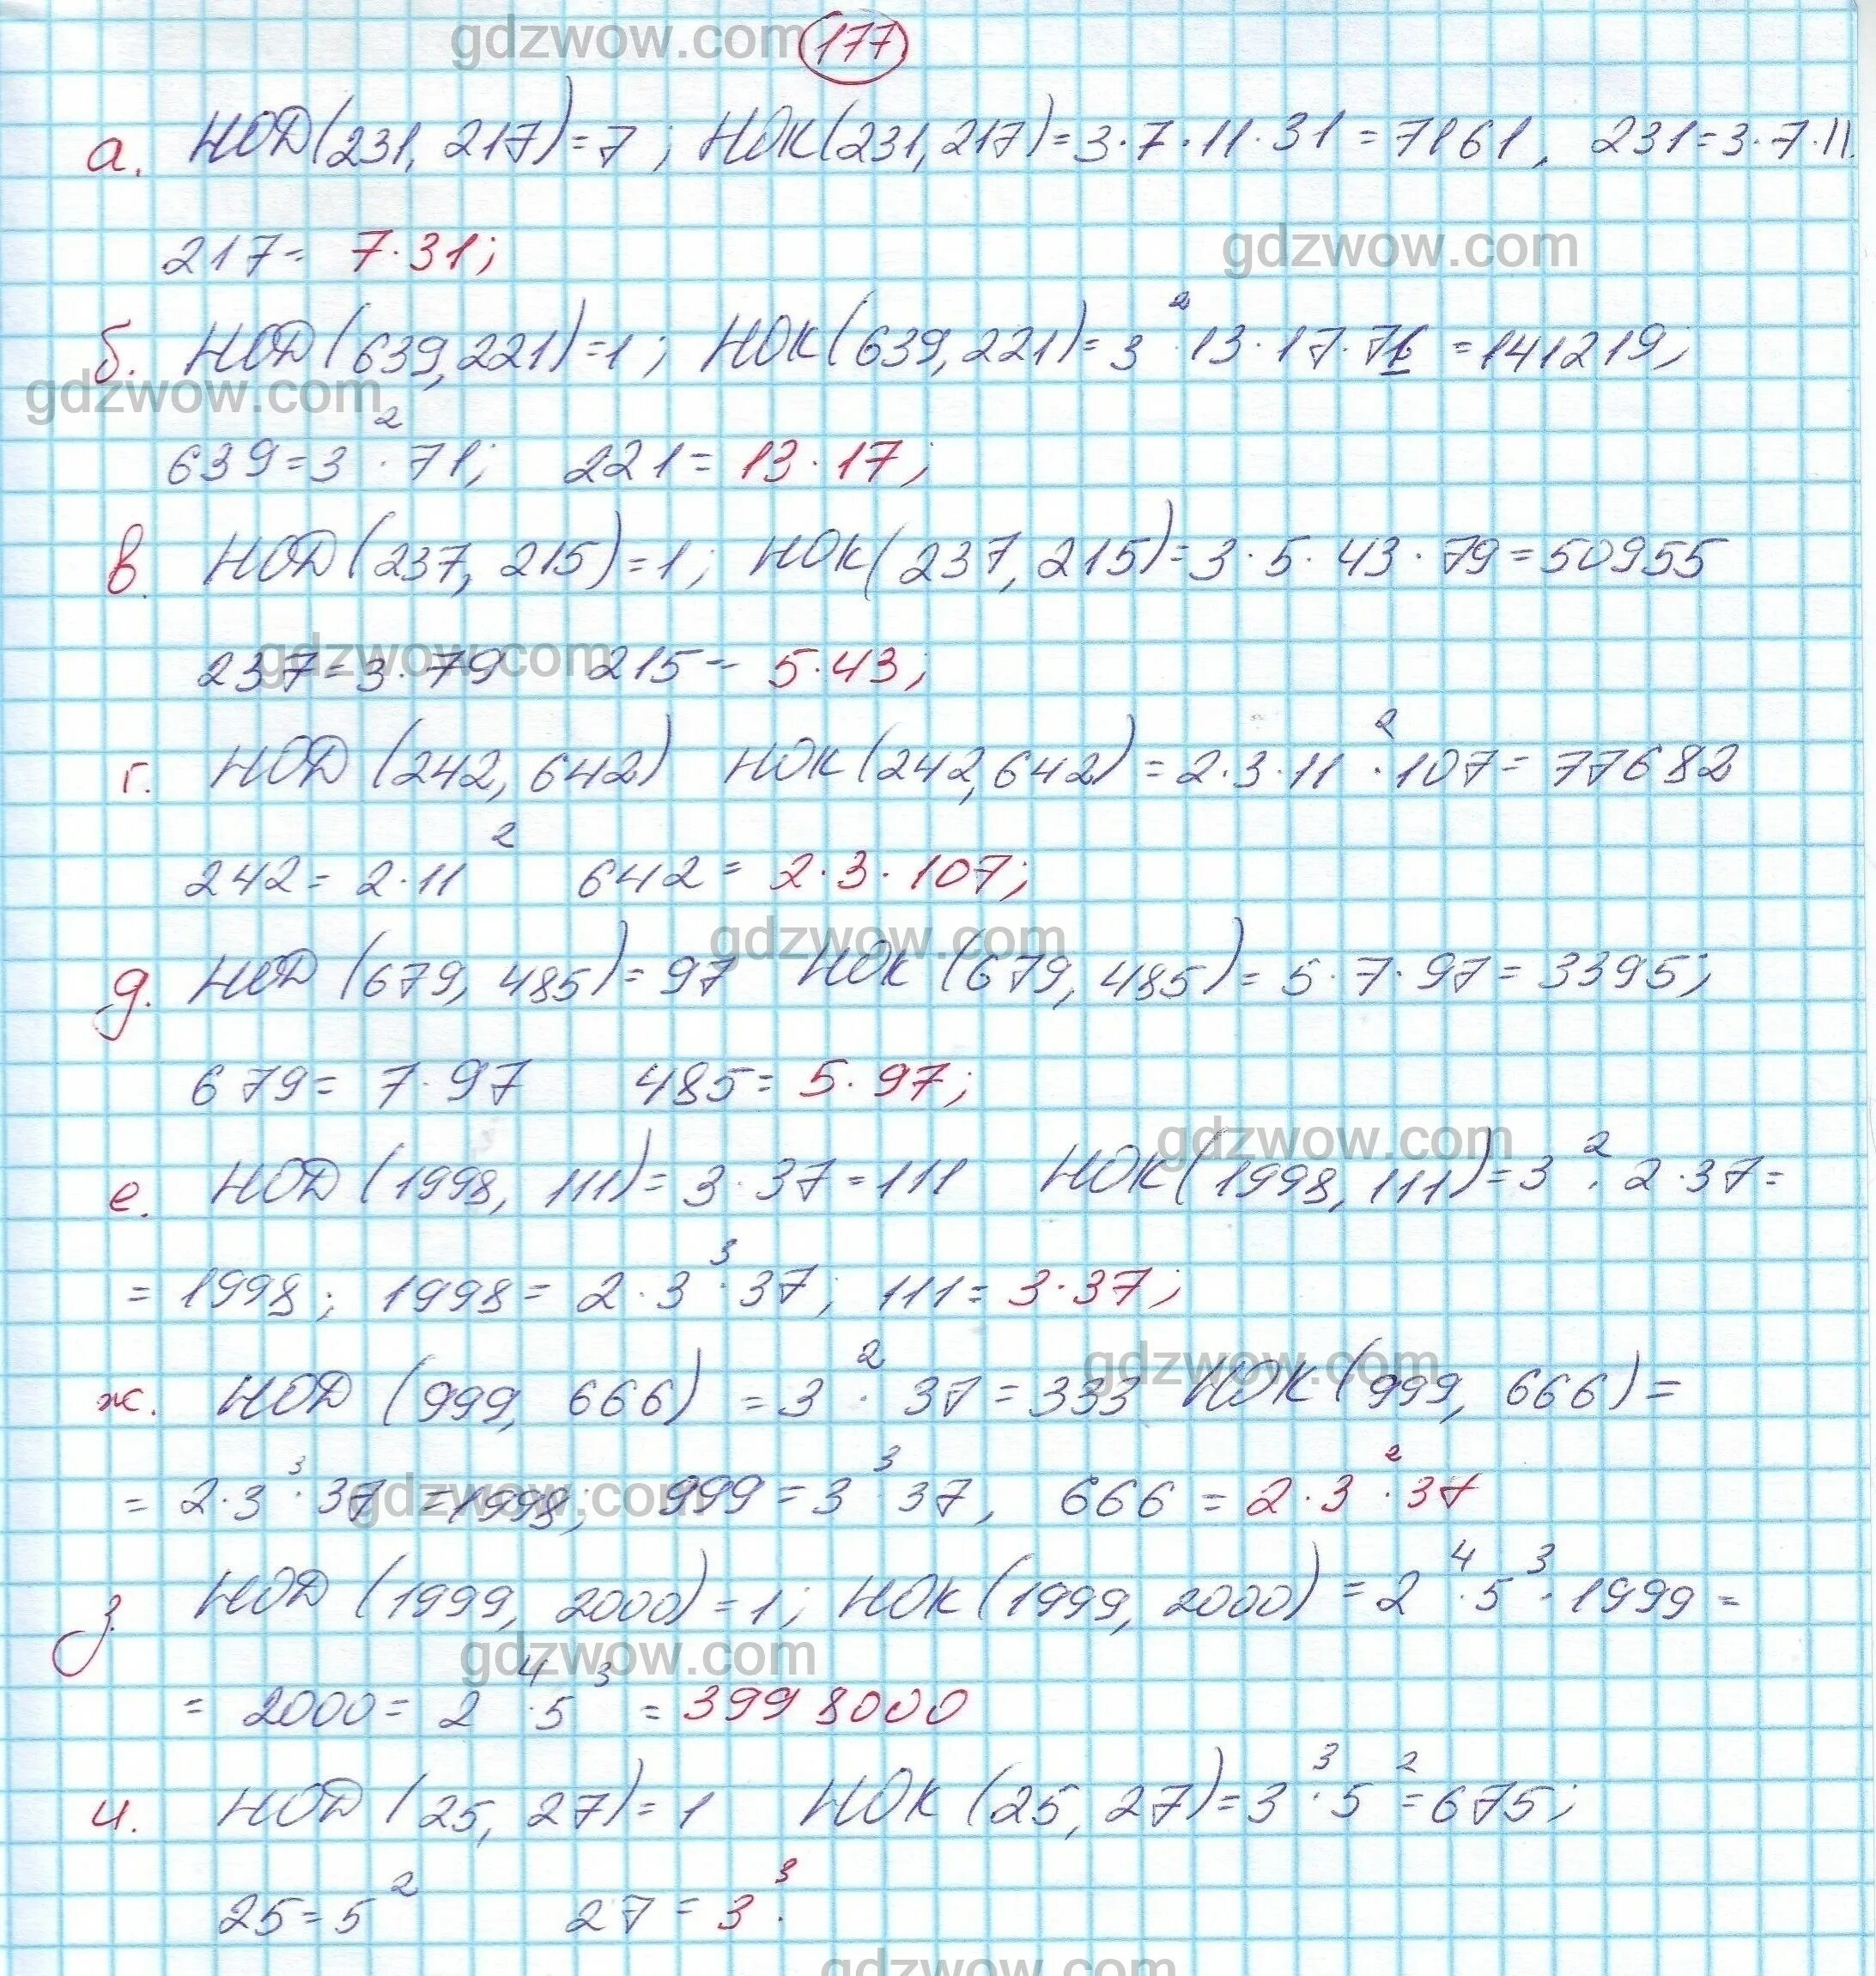 gdzwow.com 177
а. НОД(231, 217)=7; НОК(231,217)=3·7·11·31=7161, 231=3·7·11.
217= 7·31;
gdzwow.com
б. НОД(639,221)=1; НОК(639,221)=3²·13·17·71=141219;
gdzwow.com
639=3²·71; 221=13·17;
в. НОД(237, 215)=1; НОК(237,215)=3·5·43·79=50955
237=3·79 215= 5·43;
gdzwow.com
г. НОД (242, 642) НОК(242,642)=2·3·11²·107=77682
242=2·11² 642=2·3·107;
gdzwow.com
д. НОД (679, 485)=97 НОК (679, 485)=5·7·97=3395;
679= 7·97 485=5·97;
gdzwow.com
е. НОД (1998, 111)=3·37=111 НОК(1998,111)=3²·2·37=
=1998; 1998=2·3³·37; 111=3·37;
gdzwow.com
ж. НОД (999, 666) =3²·37=333 НОК(999, 666)=
=2·3³·37=1998; 999=3³·37, 666=2·3²·37
gdzwow.com
з. НОД (1999, 2000)=1; НОК(1999, 2000)=2⁴·5³·1999=
gdzwow.com
= 2000=2⁴·5³ =3998000
и. НОД (25, 27)=1 НОК (25, 27)=3³·5²=675;
25=5² 27=3³.
gdzwow.com